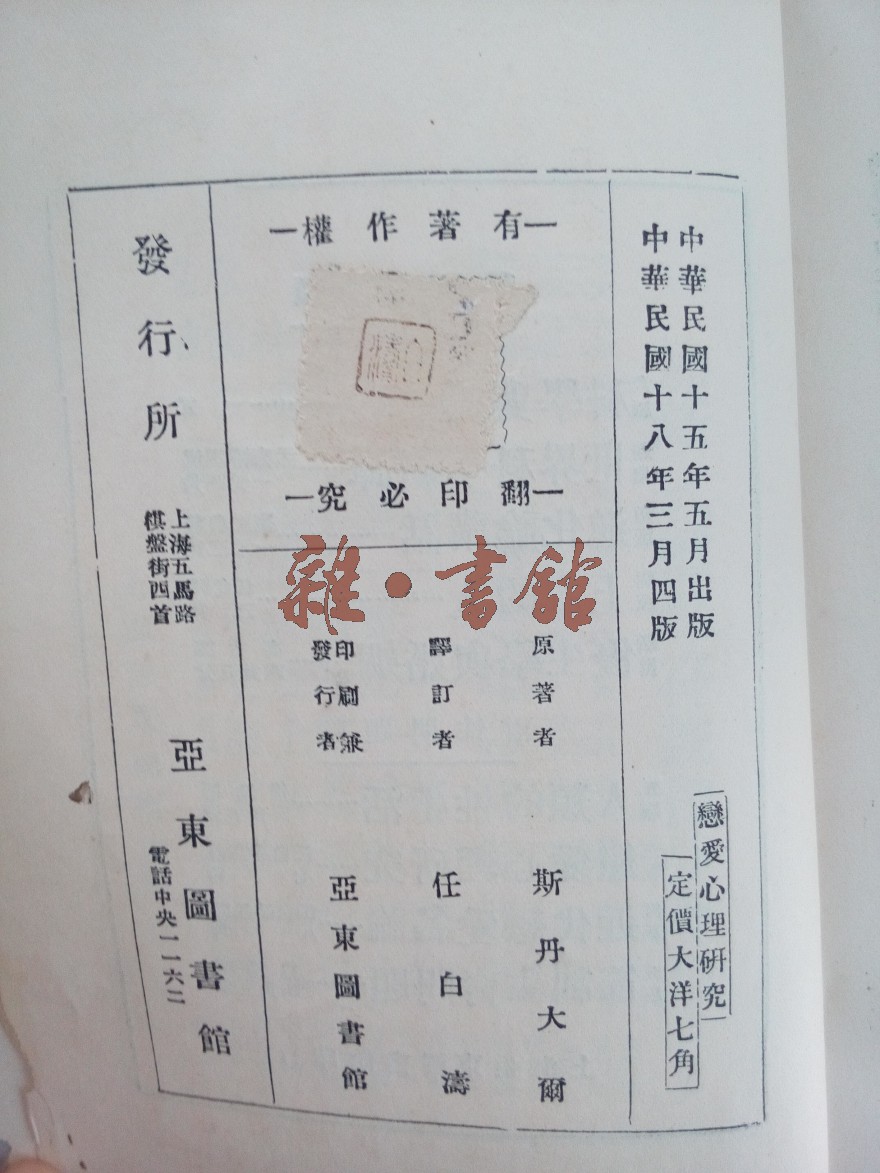 中華民國十五年五月出版
中華民國十八年三月四版
戀愛心理研究
定價大洋七角
有著作權
翻印必究
雜·書館
原著者 斯丹大爾
譯訂者 任白濤
印刷兼發行者 亞東圖書館
發行所
上海五馬路
棋盤街西首
亞東圖書館
電話中央一一六二